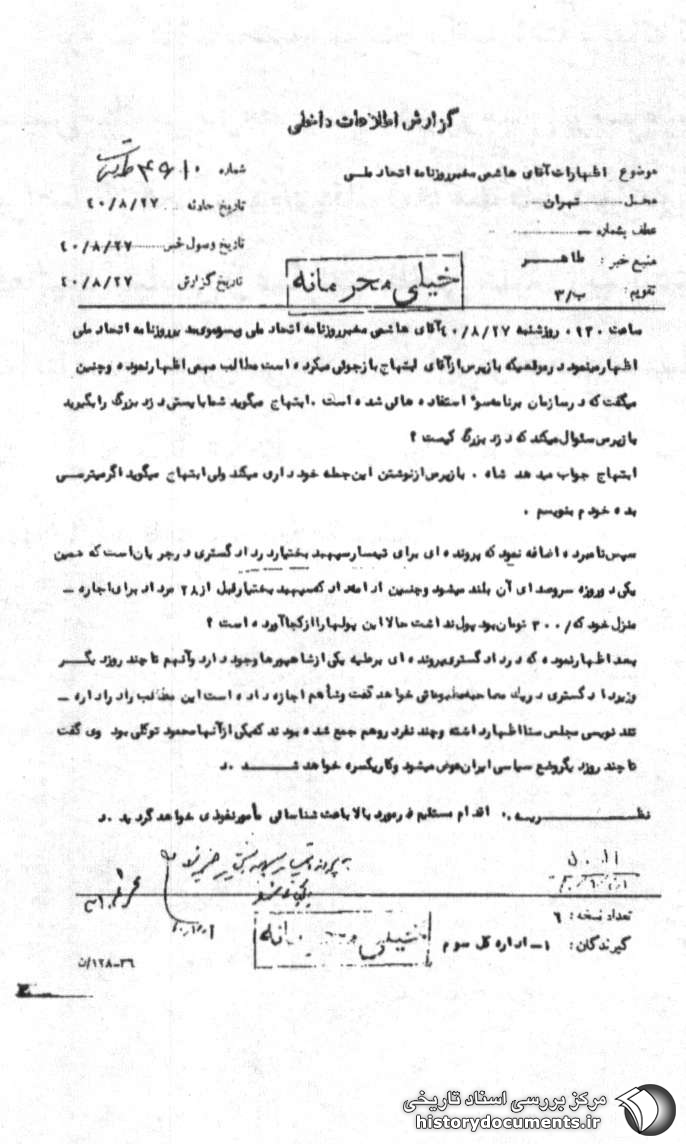 گزارش اطلاعات داخلی
موضوع اظهارات آقای هاشمی مخبر روزنامه اتحاد ملی
شماره
محل تهران
تاریخ حادثه ۴۰/۸/۲۷
عطف بشماره —
تاریخ وصول خبر ۴۰/۸/۲۷
منبع خبر : طاهر
تاریخ گزارش ۴۰/۸/۲۷
تقویم : ب/۳
خیلی محرمانه
ساعت ۰۹۳۰ روز شنبه ۴۰/۸/۲۷ آقای هاشمی مخبر روزنامه اتحاد ملی و موسوی مدیر روزنامه اتحاد ملی
اظهار مینمود در موقعیکه بازپرس از آقای ابتهاج بازجوئی میکرده است مطالب مهمی اظهار نموده و چنین
میگفت که در سازمان برنامه سوء استفاده هائی شده است . ابتهاج میگوید شما بایستی دزد بزرگ را بگیرید
بازپرس سئوال میکند که دزد بزرگ کیست ؟
ابتهاج جواب میدهد شاه . بازپرس از نوشتن این جمله خودداری میکند ولی ابتهاج میگوید اگر میترسی
بده خودم بنویسم .
سپس نامبرده اضافه نمود که پرونده ای برای تیمسار سپهبد بختیار در دادگستری در جریان است که همین
یکی دو روزه سر و صدای آن بلند میشود و چنین ادامه داد که سپهبد بختیار قبل از ۲۸ مرداد برای اجاره —
منزل خود که /۳۰۰ تومان بود پول نداشت حالا این پولها را از کجا آورده است ؟
بعد اظهار نموده که در دادگستری پرونده ای بر علیه یکی از شاهپورها وجود دارد و آنهم تا چند روز دیگر
وزیر دادگستری در یک مصاحبه مطبوعاتی خواهد گفت و شاه هم اجازه داده است این مطالب را در اداره —
تند نویسی مجلس سنا اظهار داشته و چند نفر دور هم جمع شده بودند که یکی از آنها محمود توکلی بود وی گفت
تا چند روز دیگر وضع سیاسی ایران عوض میشود و کاریکسره خواهد شد . د
نظریه .. اقدام مستقیم در مورد بالا باعث شناسائی مأمور نفوذی خواهد گردید . د
تعداد نسخه : ۶
گیرندگان : ۱- اداره کل سوم
خیلی محرمانه
۳۶-۱۲۸/ن
مرکز بررسی اسناد تاریخی
historydocuments.ir